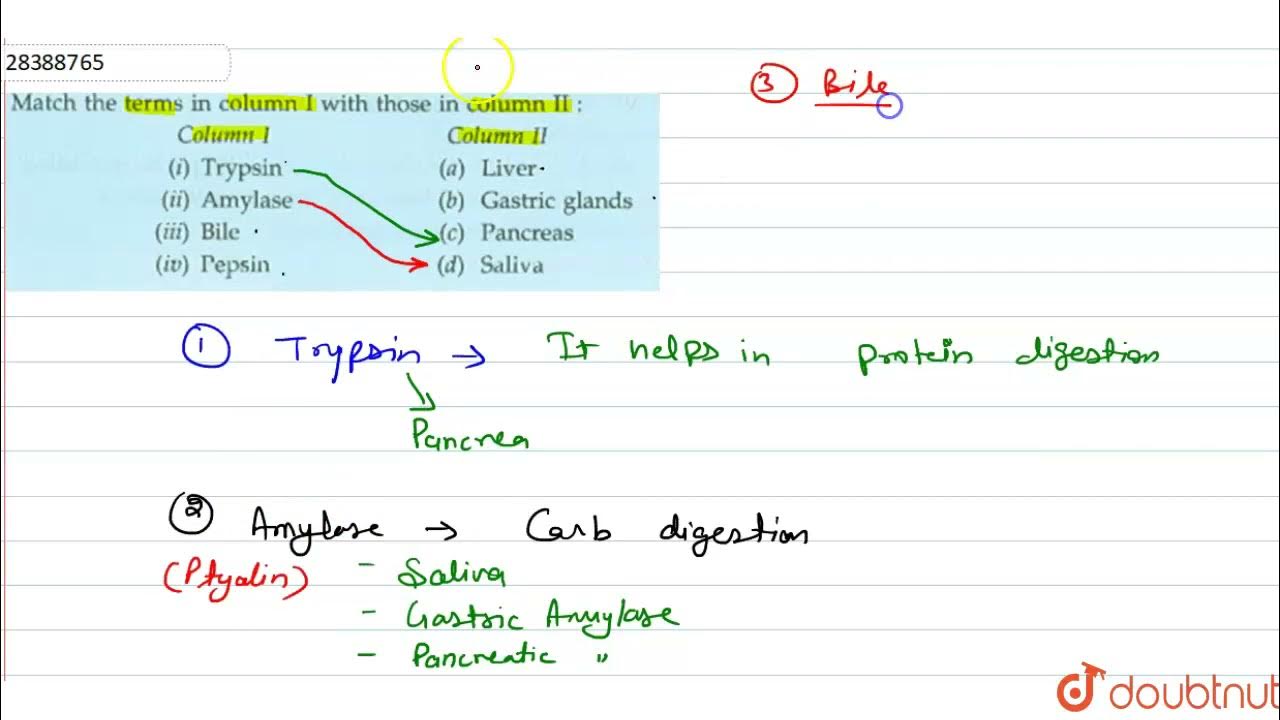 28388765
Match the terms in column I with those in column II :
Column I Column II
(i) Trypsin (a) Liver
(ii) Amylase (b) Gastric glands
(iii) Bile (c) Pancreas
(iv) Pepsin (d) Saliva
③ Bile
① Trypsin → It helps in protein digestion
Pancrea
② Amylase → Carb digestion
(Ptyalin) - Saliva
- Gastric Amylase
- Pancreatic "
doubtnut